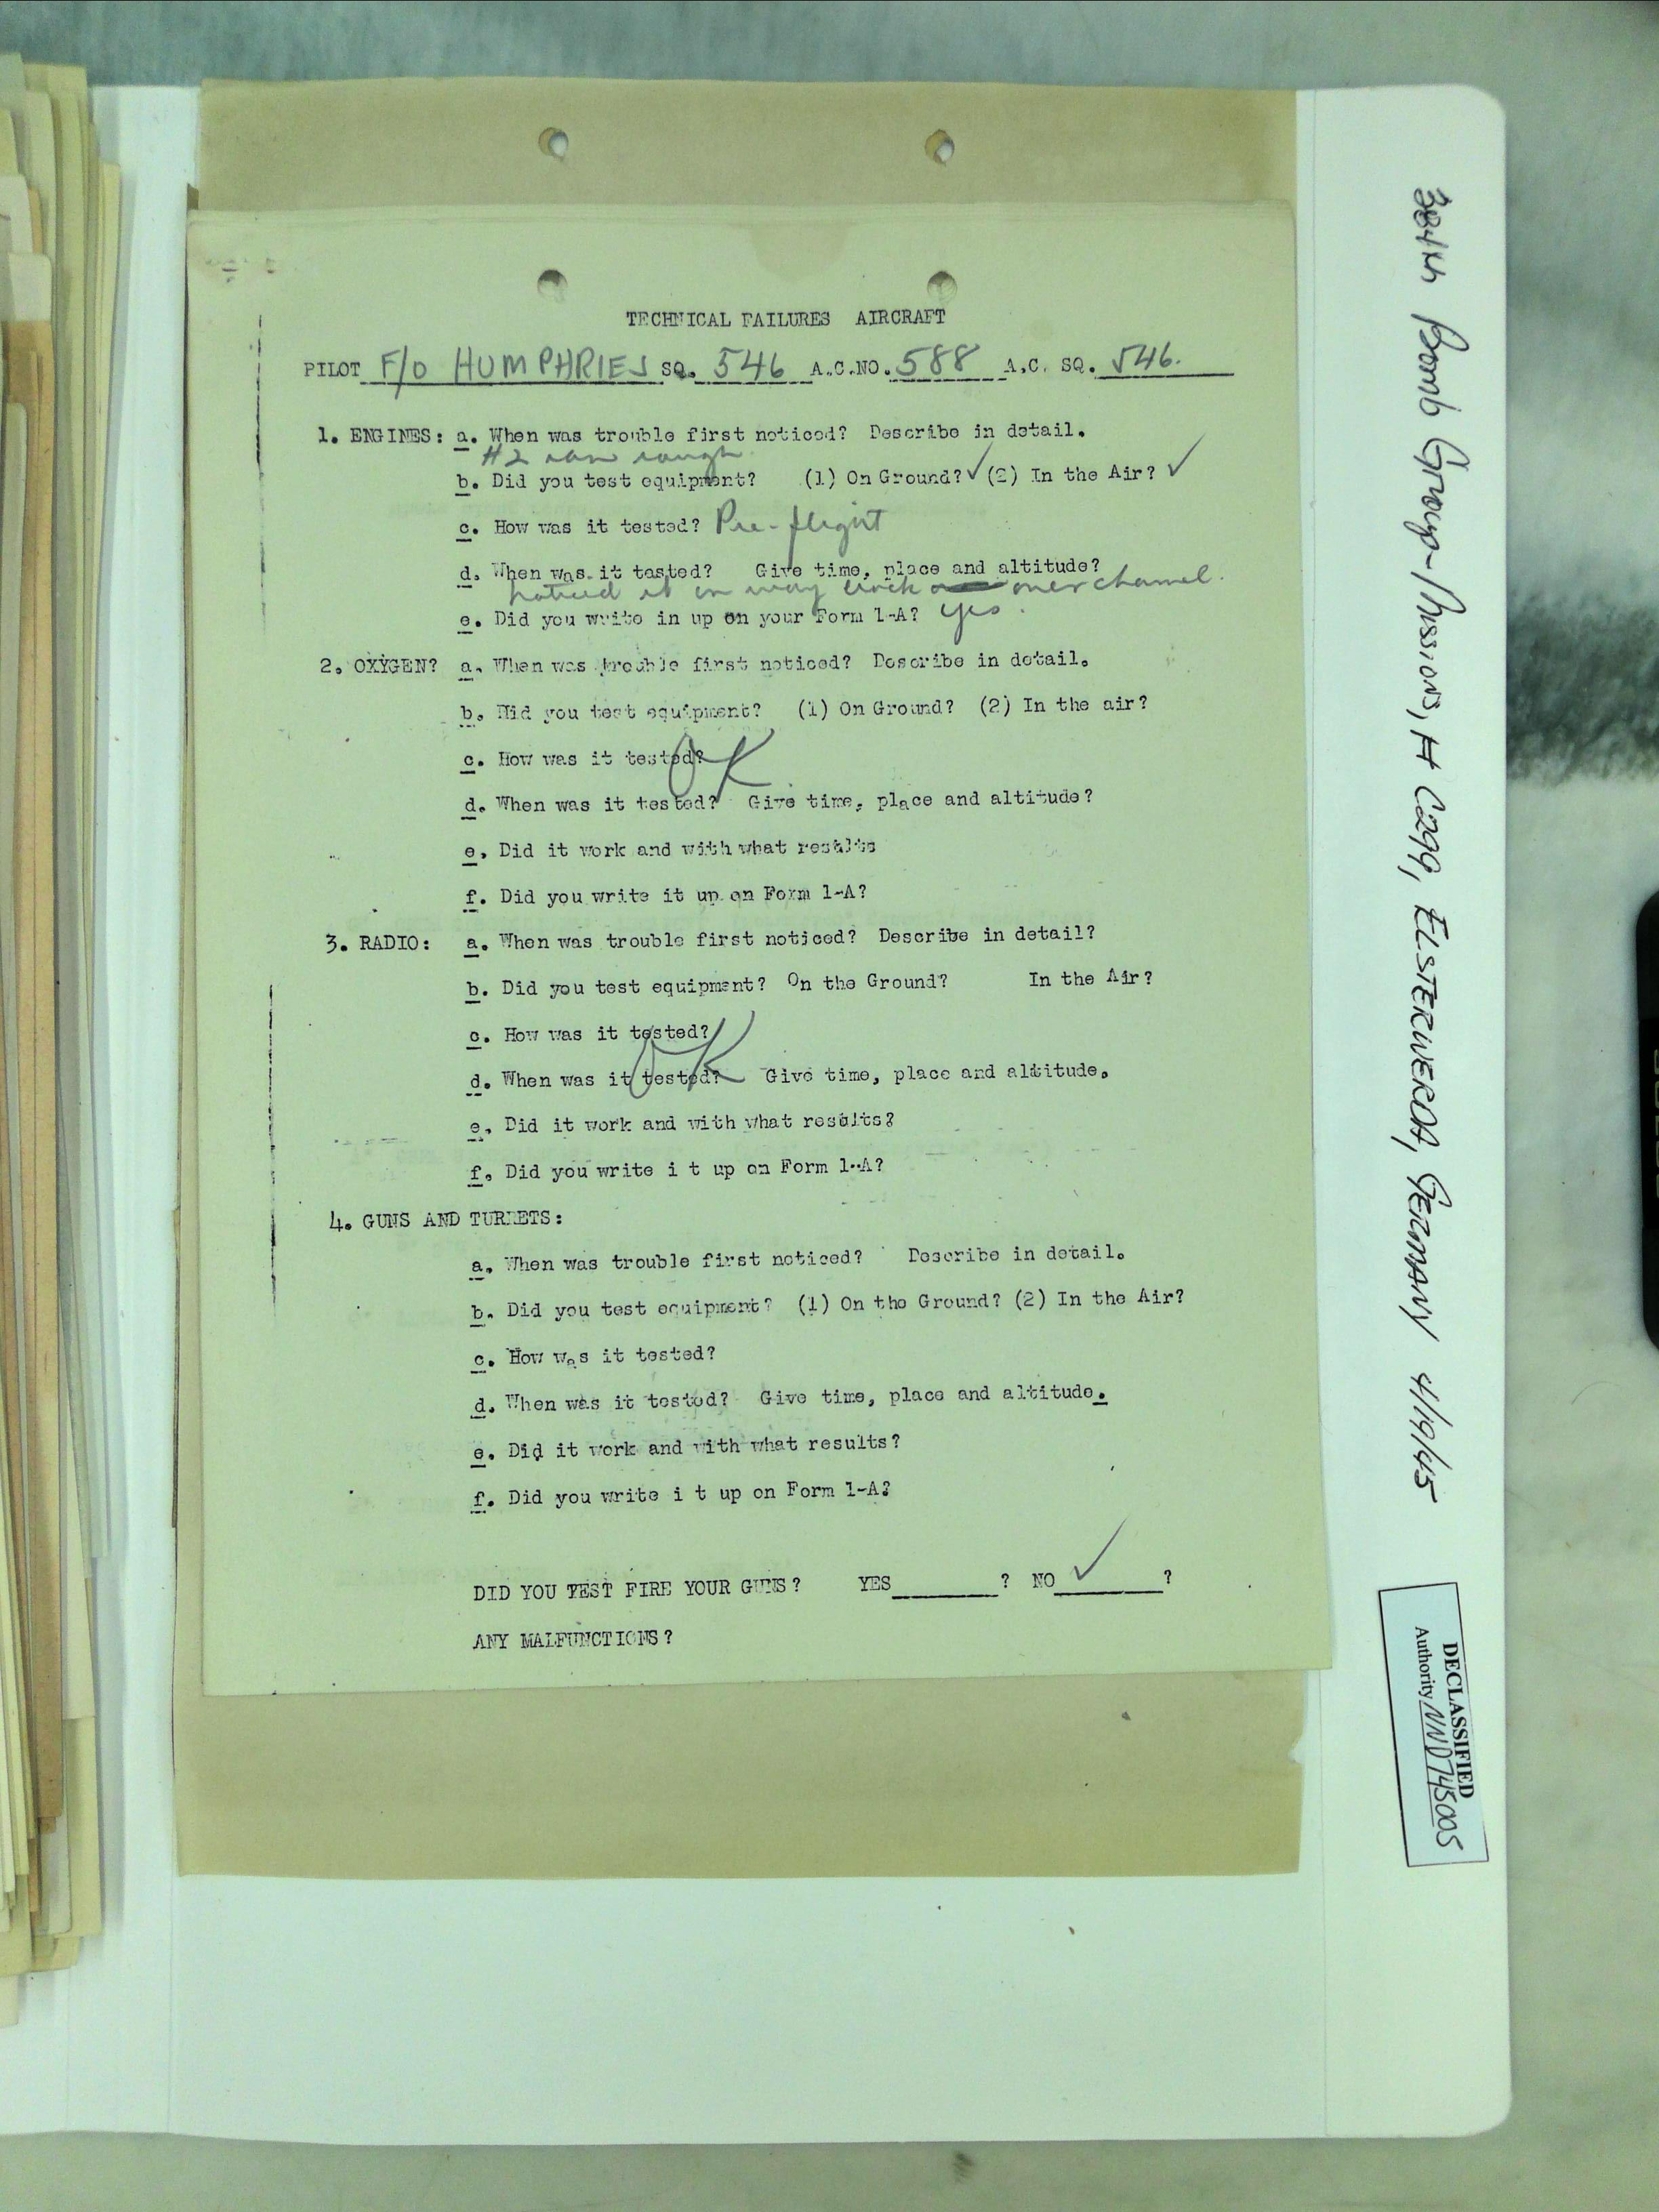 TECHNICAL FAILURES AIRCRAFT
PILOT F/O HUMPHRIES SQ. 546 A.C.NO. 588 A.C. SQ. 546.
1. ENGINES: a. When was trouble first noticed? Describe in detail.
#2 ran rough
b. Did you test equipment? (1) On Ground? ✓ (2) In the Air? ✓
c. How was it tested? Pre-flight
d. When was it tested? Give time, place and altitude?
noticed it on way back over channel.
e. Did you write in up on your Form 1-A? yes.
2. OXYGEN? a. When was trouble first noticed? Describe in detail.
b. Did you test equipment? (1) On Ground? (2) In the air?
c. How was it tested?
OK
d. When was it tested? Give time, place and altitude?
e. Did it work and with what results
f. Did you write it up on Form 1-A?
3. RADIO: a. When was trouble first noticed? Describe in detail?
b. Did you test equipment? On the Ground? In the Air?
c. How was it tested?
OK
d. When was it tested? Give time, place and altitude.
e. Did it work and with what results?
f. Did you write i t up on Form 1-A?
4. GUNS AND TURRETS:
a. When was trouble first noticed? Describe in detail.
b. Did you test equipment? (1) On the Ground? (2) In the Air?
c. How was it tested?
d. When was it tested? Give time, place and altitude.
e. Did it work and with what results?
f. Did you write i t up on Form 1-A?
DID YOU TEST FIRE YOUR GUNS? YES ? NO ✓ ?
ANY MALFUNCTIONS?
384th Bomb Group-Missions, # 299, ELSTERWERDA, GERMANY 4/19/45
DECLASSIFIED
Authority NND 745005